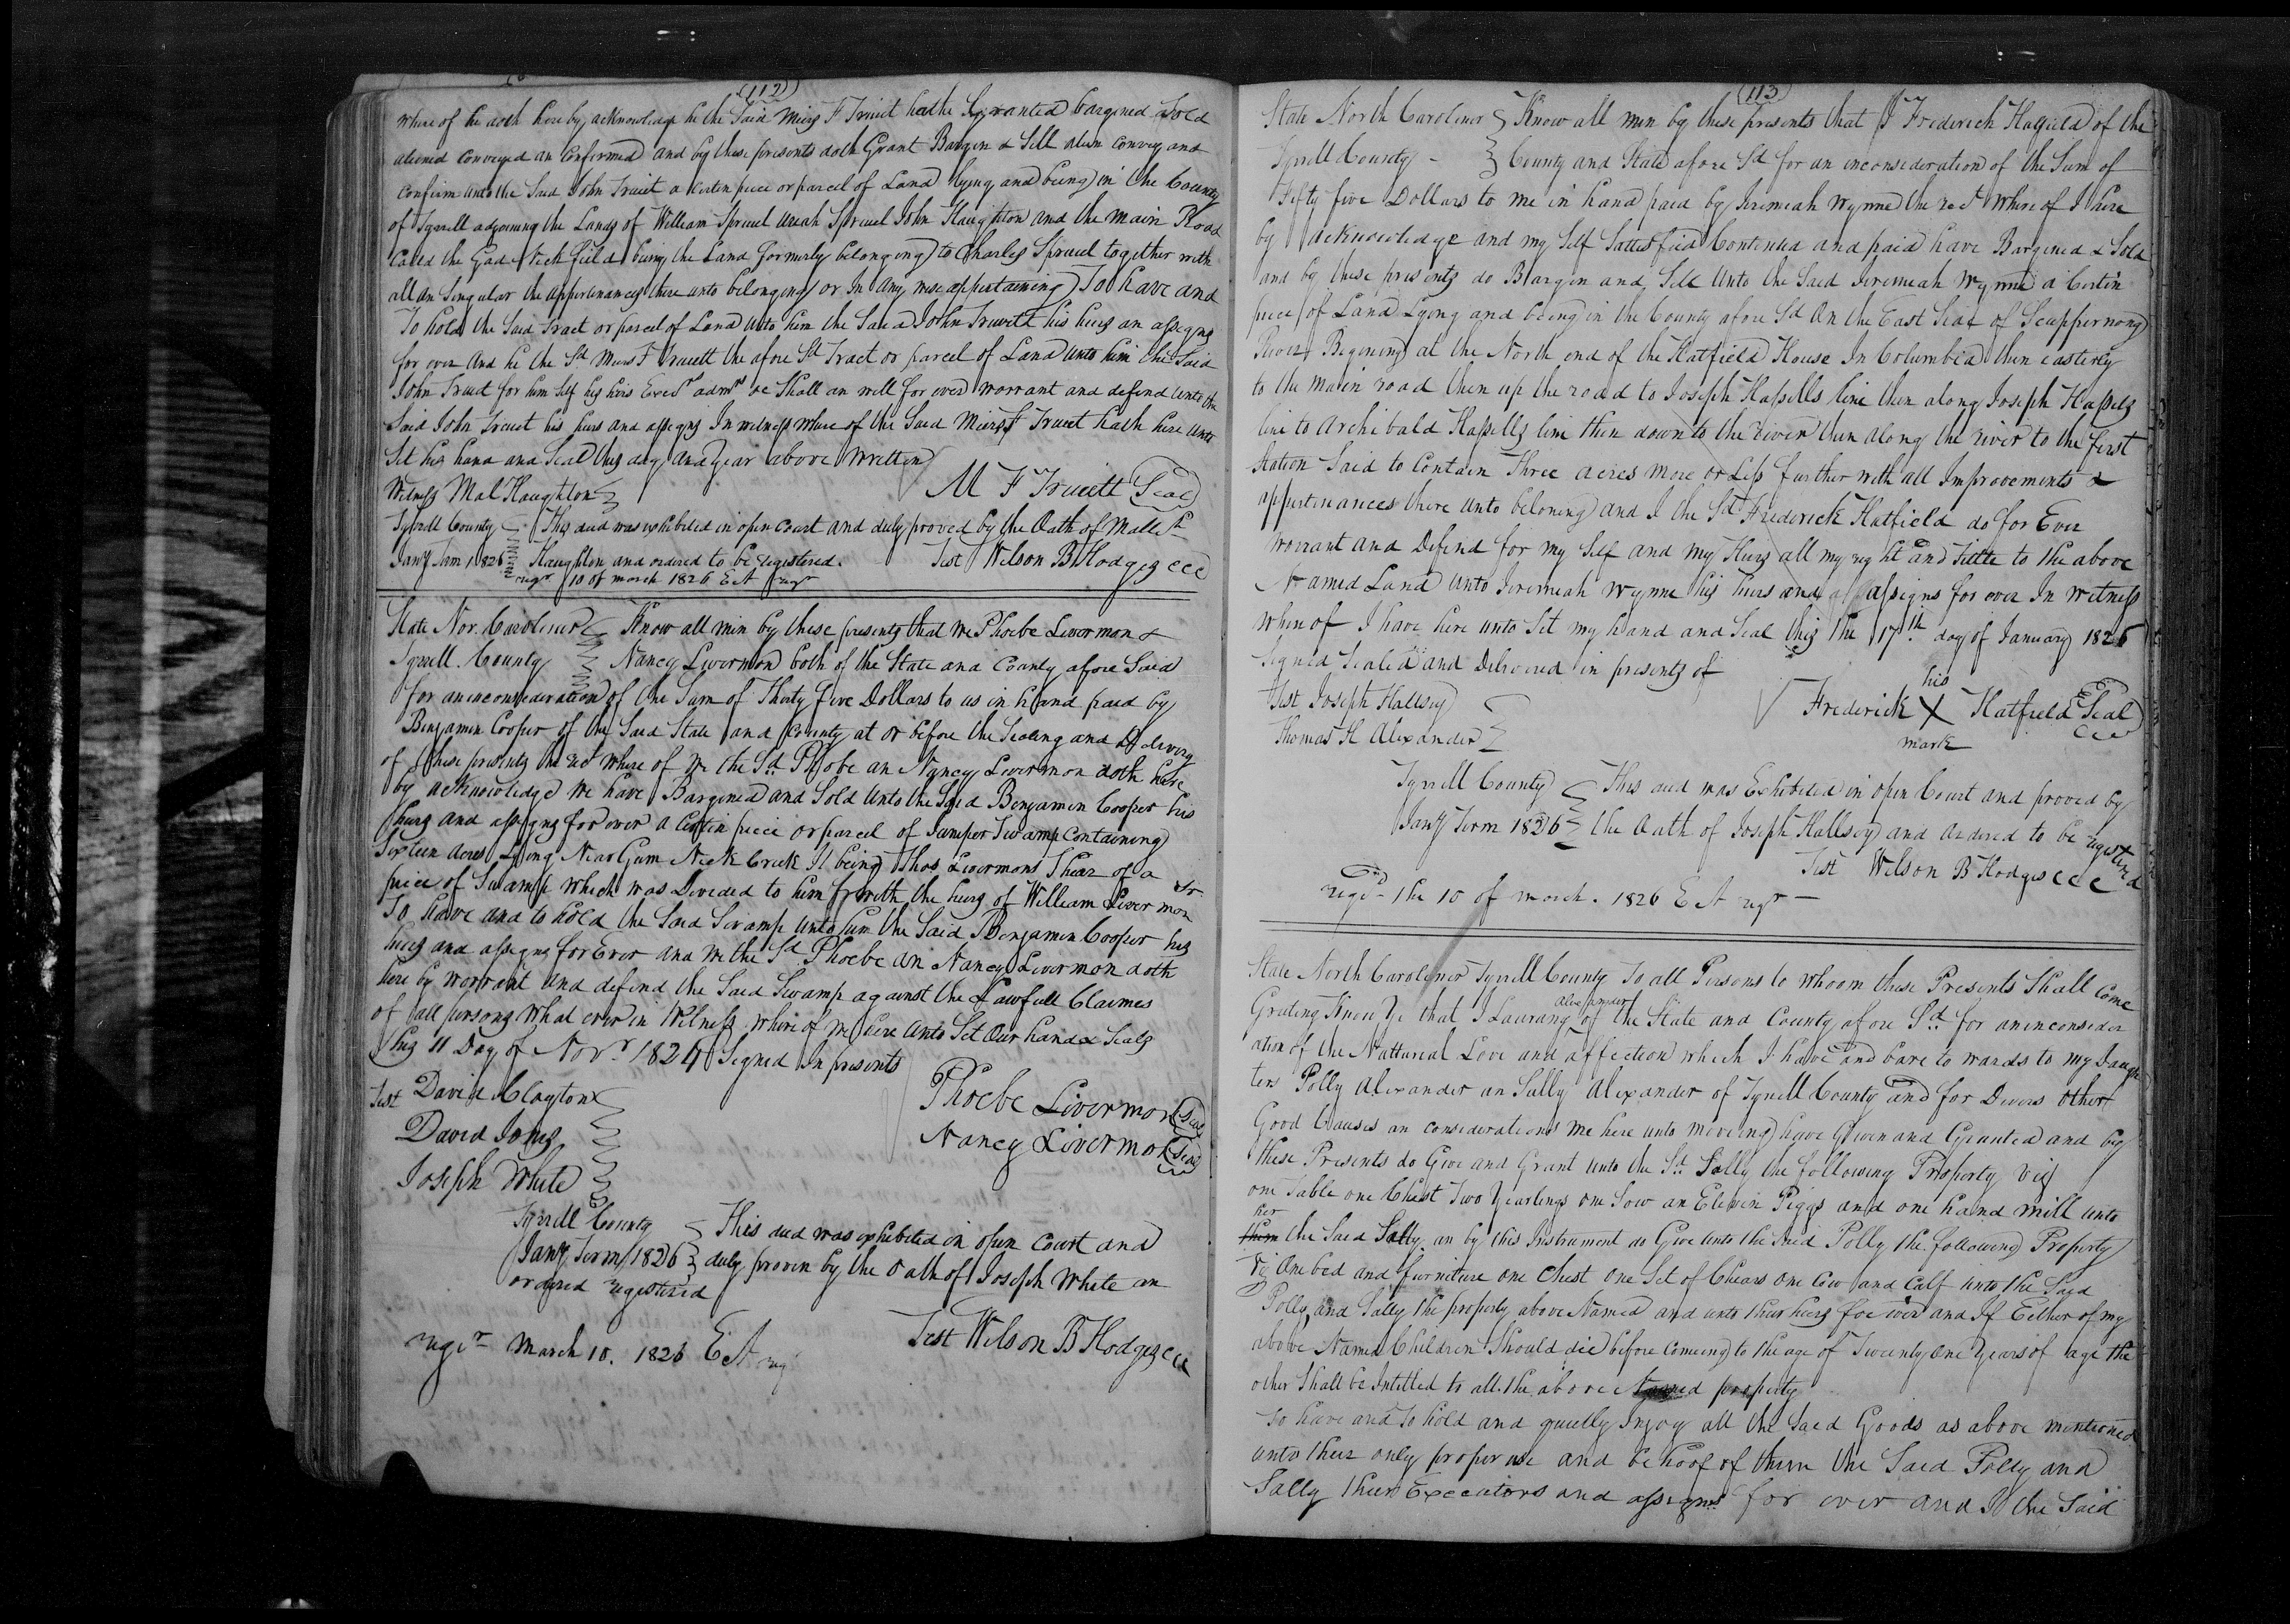 (112)
where of he doth here by acknowledge he the Said Miers F Truiet hathe granted bargened Sold
aliened conveyed an Confirmed and by these presents doth Grant Bargin & Sell alien convey and
confirm unto the Said John Truiet a certen piece or parcel of Land lying and being in the County
of Tyrrell adjoining the Lands of William Spruel Uriah Spruel John Haughton and the main Road
Called the Gad Neck field being the Land formerly belonging to Charles Spruel together with
all an Singular the appertinances there unto belonging or In Any wise appertaining To have and
To hold the Said Tract or parcel of Land unto him the Said John Truiett his heirs an assigns
for ever And he the Sd Miers F Truiett the afore Sd Tract or parcel of Land unto him the Said
John Truiet for him Self his heirs Execrs admrs &c Shall an will for ever warrant and defend unto the
Said John Truiet his heirs and assigns In witness where of the Said Miers F Truiet hath here unto
Set his hand and Seal this day and year above written
M F Truiett Seal
Witness Mal Haughton
Tyrrell County This deed was exhibited in open court and duly proved by the Oath of
Jany Term 1826 Haughton and ordered to be registered. Test Wilson B Hodges ccc
regr 10 of march 1826 E A regr
State Nor. Caroliner Know all min by these presents that we Phoebe Livermon &
Tyrrell County Nancy Livermon both of the State and County afore Said
for an inconsederation of the Sum of Thirty five Dollars to us in hand paid by
Benjamen Cooper of the Said State and County at or before the Sealing and Delivery
of these presents the rect where of we the Sd Phobe an Nancy Livermon doth here
by acKnowledge we have Bargened and Sold unto the Said Benjamen Cooper his
heirs and assigns for ever a certin piece or parcel of Juniper Swamp containing
Sixteen acres Lying Near Gum Neck Creek It being Thos Livermons Shear of a
piece of Swamp which was Devided to him with the heirs of William Livermon Sr
To have and to hold the Said Swamp unto him the Said Benjamen Cooper his
heirs and assigns for Ever and we the Sd Phoebe an Nancy Livermon doth
here by warrant and defend the Said Swamp against the Lawfull Claimes
of all persons what ever in Witness where of we here unto Set Our hand & Seals
this 11 Day of Novr 1824 Signed In presents
Test David Clayton
Phoebe Livermon Seal
David Jones
Nancy Livermon Seal
Joseph White
Tyrrell County This deed was exhibited in open court and
Jany Term 1826 duly proven by the oath of Joseph White an
ordered registered
Test Wilson B Hodges ccc
regr March 10. 1826 E A reg
(113)
State North Caroliner Know all min by these presents that I Frederick Hatfield of the
Tyrrell County - County and State afore Sd for an inconsideration of the Sum of
Fifty five Dollars to me in hand paid by Jeremiah Wynne the rect where of I here
by acKnowledge and my Self Sattesfied Contented and paid have Bargened & Sold
and by these presents do Bargin and Sell unto the Said Jeremiah Wynne a Certin
piece of Land Lying and being in the County afore Sd On the East Side of Scuppernong
River Begening at the North end of the Hatfield House In Columbia then easterly
to the main road then up the road to Joseph Hassells line then along Joseph Hassels
line to Archibald Hassells line then down to the river then along the river to the first
Station Said to Contain Three acres more or Less further with all Improvements &
appertinances there unto beloning and I the Sd Frederick Hatfield do for Ever
warrant and Defend for my Self and my Heirs all my right and Title to the above
Named Land unto Jeremiah Wynne his heirs and assigns for ever In witness
where of I have here unto Set my hand and Seal this the 17th day of January 1826
Signed Sealed and Delivered in presents of
Test Joseph Hallsey
his
Frederick X Hatfield Seal
mark
Thomas H Alexander
Tyrrell County This deed was Exhibited in open Court and proved by
Jany Term 1826 the Oath of Joseph Hallsey and ordered to be registered
Test Wilson B Hodges ccc
regd the 10 of march. 1826 E A regr
State North Caroliner Tyrrell County To all Persons to whoom these Presents Shall Come
Greating Know Ye that I Laurang alexander of the State and County afore Sd for an inconsider
ation of the Natturial Love and affection which I have and bare to wards to my Daugh
ters Polly Alexander an Sally Alexander of Tyrrell County and for Divers other
Good Causes an considerations me here unto moveing have Given and Grunted and by
these Presents do Give and Grant unto the Sd Sally the following Property viz
one Table one Chest Two Yearlings one Sow an Elevin Piggs and one hand mill unto
them her the Said Sally an by this Instrument do Give unto the Said Polly the following Property
Viz One bed and furniture one Chest one Set of Chears one Cow and Calf unto the Said
Polly and Sally the property above Named and unto their heirs for ever and If Either of my
above Named Children Should die before Comeing to the age of Twenty one Years of age the
other Shall be Intitled to all the above Named property
To have and To hold and quietly Injoy all the Said Goods as above mentioned
unto their only proper use and be hoof of them the Said Polly and
Sally their Executors and assigns for ever and I the Said